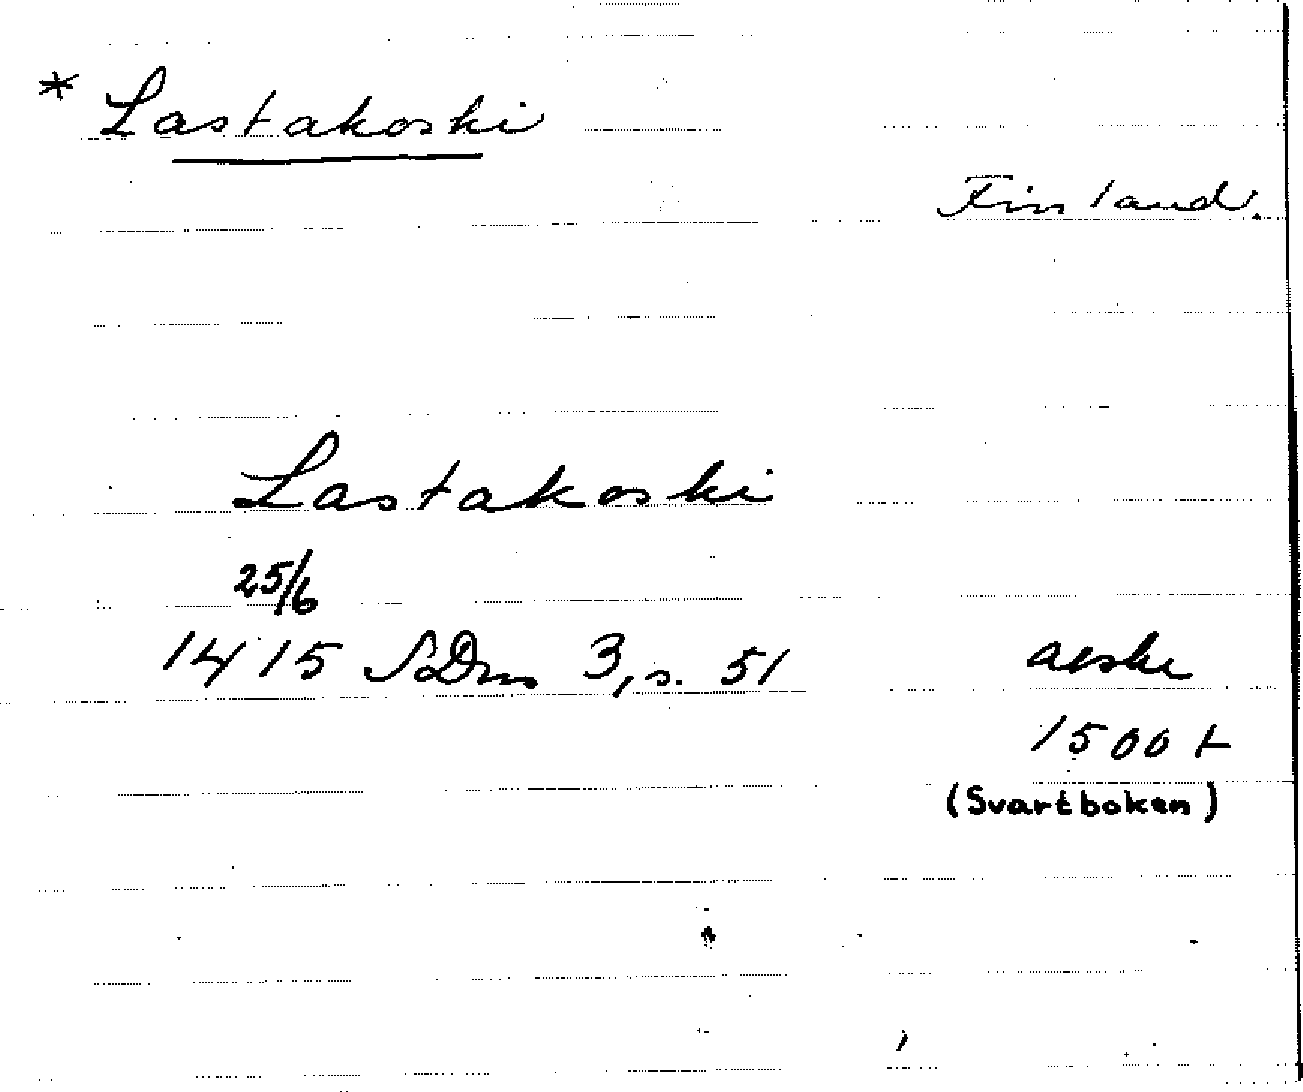 * Lastakoski
Finland.
Lastakoski
25/6
1415 SDns 3, s. 51
avskr
1500 t
(Svartboken)